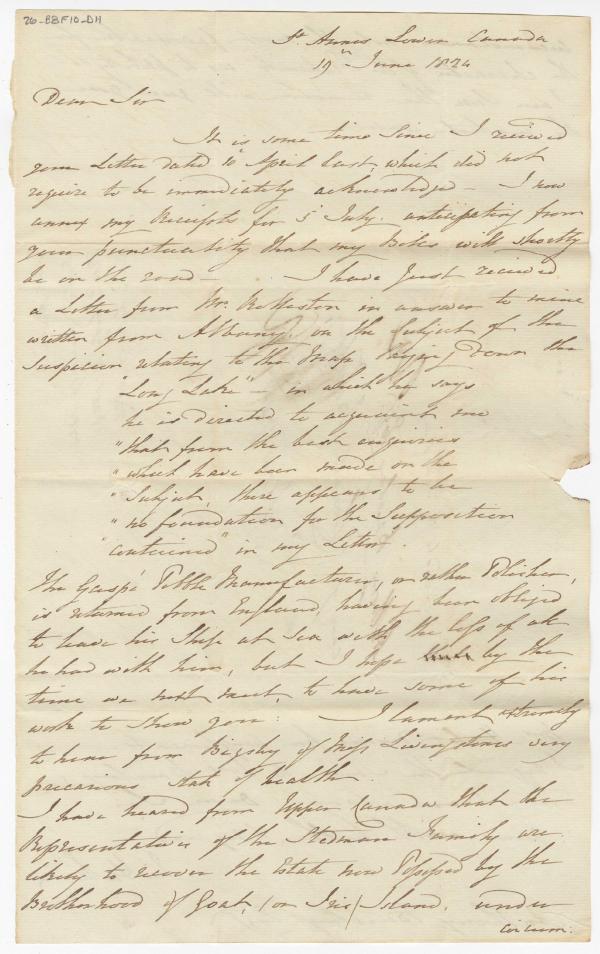 26-BBF10-DH
St. Annes Lower Canada
19th June 1824
Dear Sir
It is some time since I received
your Letter dated 10th April last, which did not
require to be immediately acknowledged - I now
annex my Receipts for 5 July. anticipating from
your punctuality that my Bills will shortly
be on the road - . I have just received
a Letter from Mr. in answer to mine
written from Albany, on the subject of the
Suspicion relating to the Map, laying down the
"Long Lake" - in which he says
he is directed to acquaint me
"that from the best enquiries
"which have been made on the
"Subject, there appears to be
"no foundation for the Supposition
"contained" in my Letter.
The Gaspé Pebble Manufacturer, or rather Polisher,
is returned from England, having been obliged
to leave his Ship at Sea with the loss of all
he had with him, but I hope by the
time we next meet, to have some of his
work to show you: I lament extremely
to hear from Bigsby of Miss Livingstones very
precarious state of health.
I have heard from Upper Canada that the
Representatives of the Stedman Family are
likely to recover the Estate now Possessed by the
Brotherhood of Goat, (or Iris) Island, under
Circum: